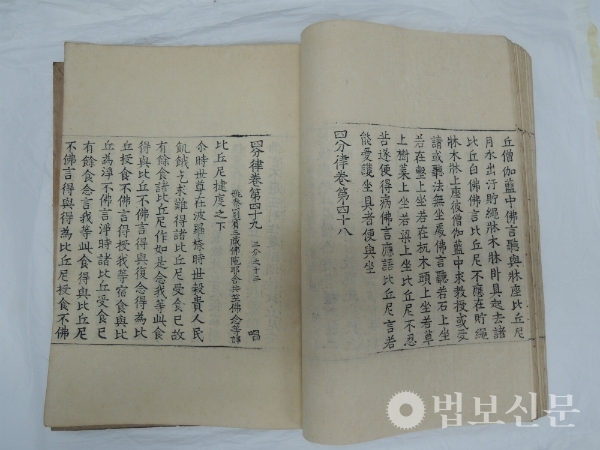 丘僧伽藍中佛言聽與牀座比丘尼
月水出汙貯繩牀木牀卧具起去諸
比丘白佛佛言比丘尼不應在貯繩
牀木牀上座後僧伽藍中來教授或受
請或聽法無坐處佛言聽若石上坐
若在墼上坐若在杌木頭上坐若草
上樹葉上坐若梁上坐比丘尼不忍
苦遂便得病佛言應語比丘尼言若
能愛護坐具者便與坐
四分律卷第四十八
四分律卷第四十九 三分之十三 唱
姚秦罽賓三藏佛陀耶舍共竺佛念等譯
比丘尼揵度之下
尒時世尊在波羅㮈時世穀貴人民
飢餓乞求難得諸比丘尼受食已故
有餘食諸比丘尼作如是念我等此食
得與比丘不佛言得與復念得為比
丘授食不佛言得授我等宿食與比
丘為淨不佛言淨時諸比丘受食已
有餘食念言我等此食得與比丘尼
不佛言得與得為比丘尼授食不佛
법보신문